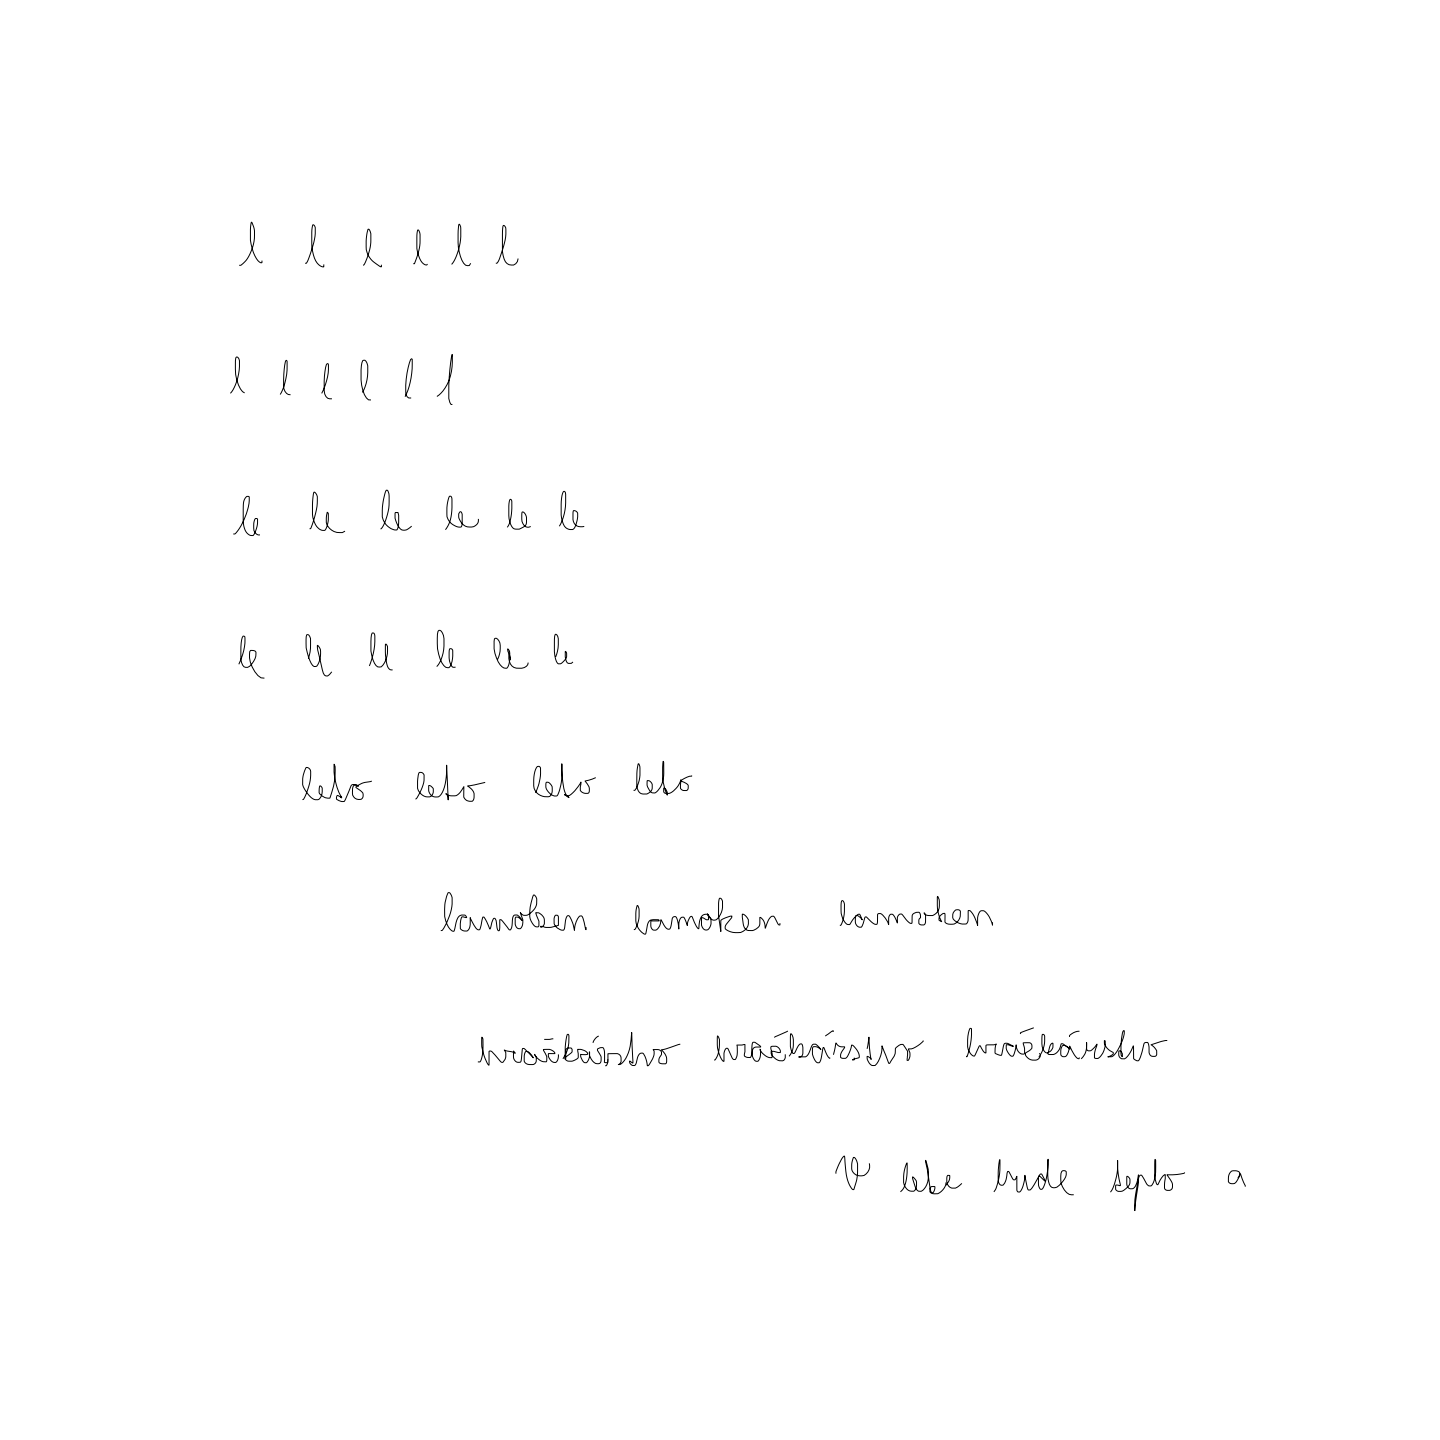 l l l l l l
l l l l l l
le le le le le le
le le le le le le
leto leto leto leto
lamoken lamoken lamoken
hračkárstvo hračkárstvo hračkárstvo
V lete bude teplo a